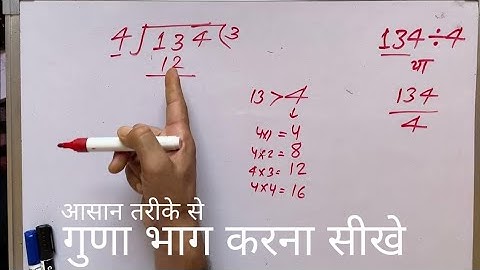 4 134 3
12
134÷4
या
134
4
13 > 4
↓
4x1 = 4
4x2 = 8
4x3 = 12
4x4 = 16
आसान तरीके से
गुणा भाग करना सीखे